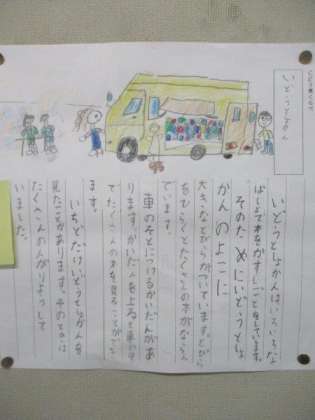 いどうとしょかん
いどうとしょかんはいろいろな
ばしょで本をかすしごとをしています。
そのためにいどうとしょ
かんのよこに
大きなとびらがついています。とびら
をひらくとたくさんの本がならん
でいます。
車のそとにつけるかいだんがあ
ります。かいだんを上ると車の中
でたくさんの本を見ることができ
ます。
いちどだけいどうとしょかんを
見たことがあります。そのときは
たくさんの人がりようして
いました。